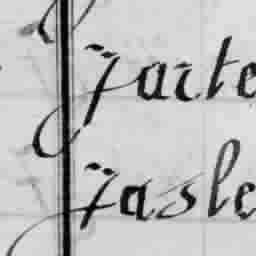 Jaite
Jasle